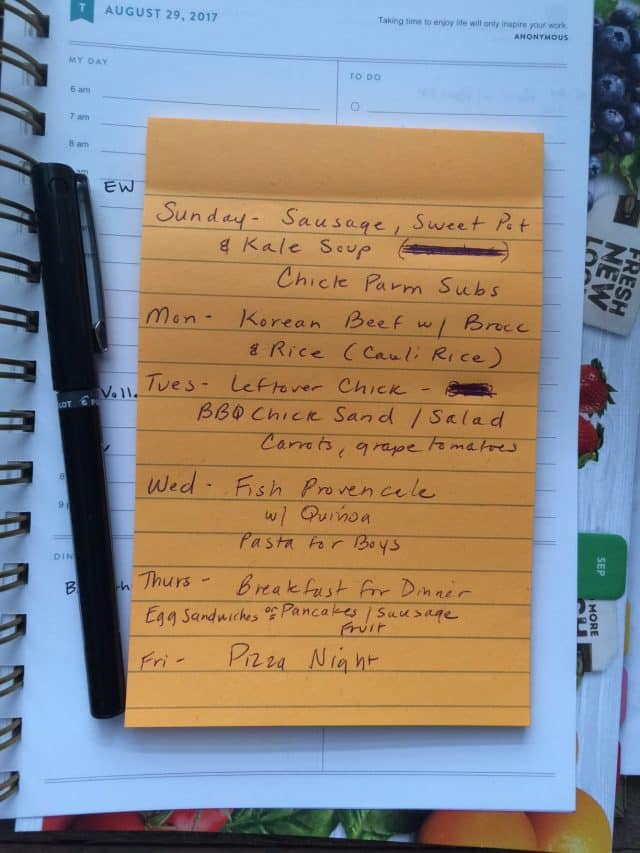 T AUGUST 29, 2017
Taking time to enjoy life will only inspire your work.
ANONYMOUS
MY DAY
TO DO
6 am
7 am
8 am
am
EW
Sunday - Sausage, Sweet Pot
& Kale Soup
Chick Parm Subs
Mon - Korean Beef w/ Brocc
& Rice (Cauli Rice)
Tues - Leftover Chick -
BBQ Chick Sand / Salad
Carrots, grape tomatoes
Wed - Fish Provencale
w/ Quinoa
Pasta for Boys
Thurs - Breakfast for Dinner
Egg Sandwiches or Pancakes / Sausage
Fruit
Fri - Pizza Night
DIN
SEP
FRESH
NEW
MORE